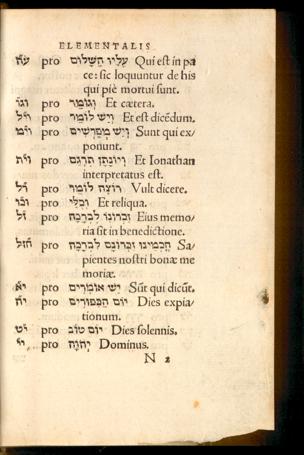 ELEMENTALIS
ע״ה pro עליו השלום Qui est in pa
ce: sic loquuntur de his
qui piè mortui sunt.
וגו׳ pro וגומר Et cætera.
וי״ל pro ויש לומר Et est dicẽdum.
וי״מ pro ויש מפרשים Sunt qui ex/
ponunt.
וי״ת pro ויונתן תרגם Et Ionathan
interpretatus est.
ר״ל pro רוצה לומר Vult dicere.
וכו׳ pro וכלי Et reliqua.
ז״ל pro זכרונו לברכה Eius memo/
ria sit in benedictione.
חז״ל pro חכמינו זכרונם לברכה Sa/
pientes nostri bonæ me
moriæ.
י״א pro יש אומרים Sũt qui dicũt.
י״ה pro יום הכפורים Dies expia/
tionum.
י״ט pro יום טוב Dies solennis.
י״י pro יהוה Dominus.
N 2